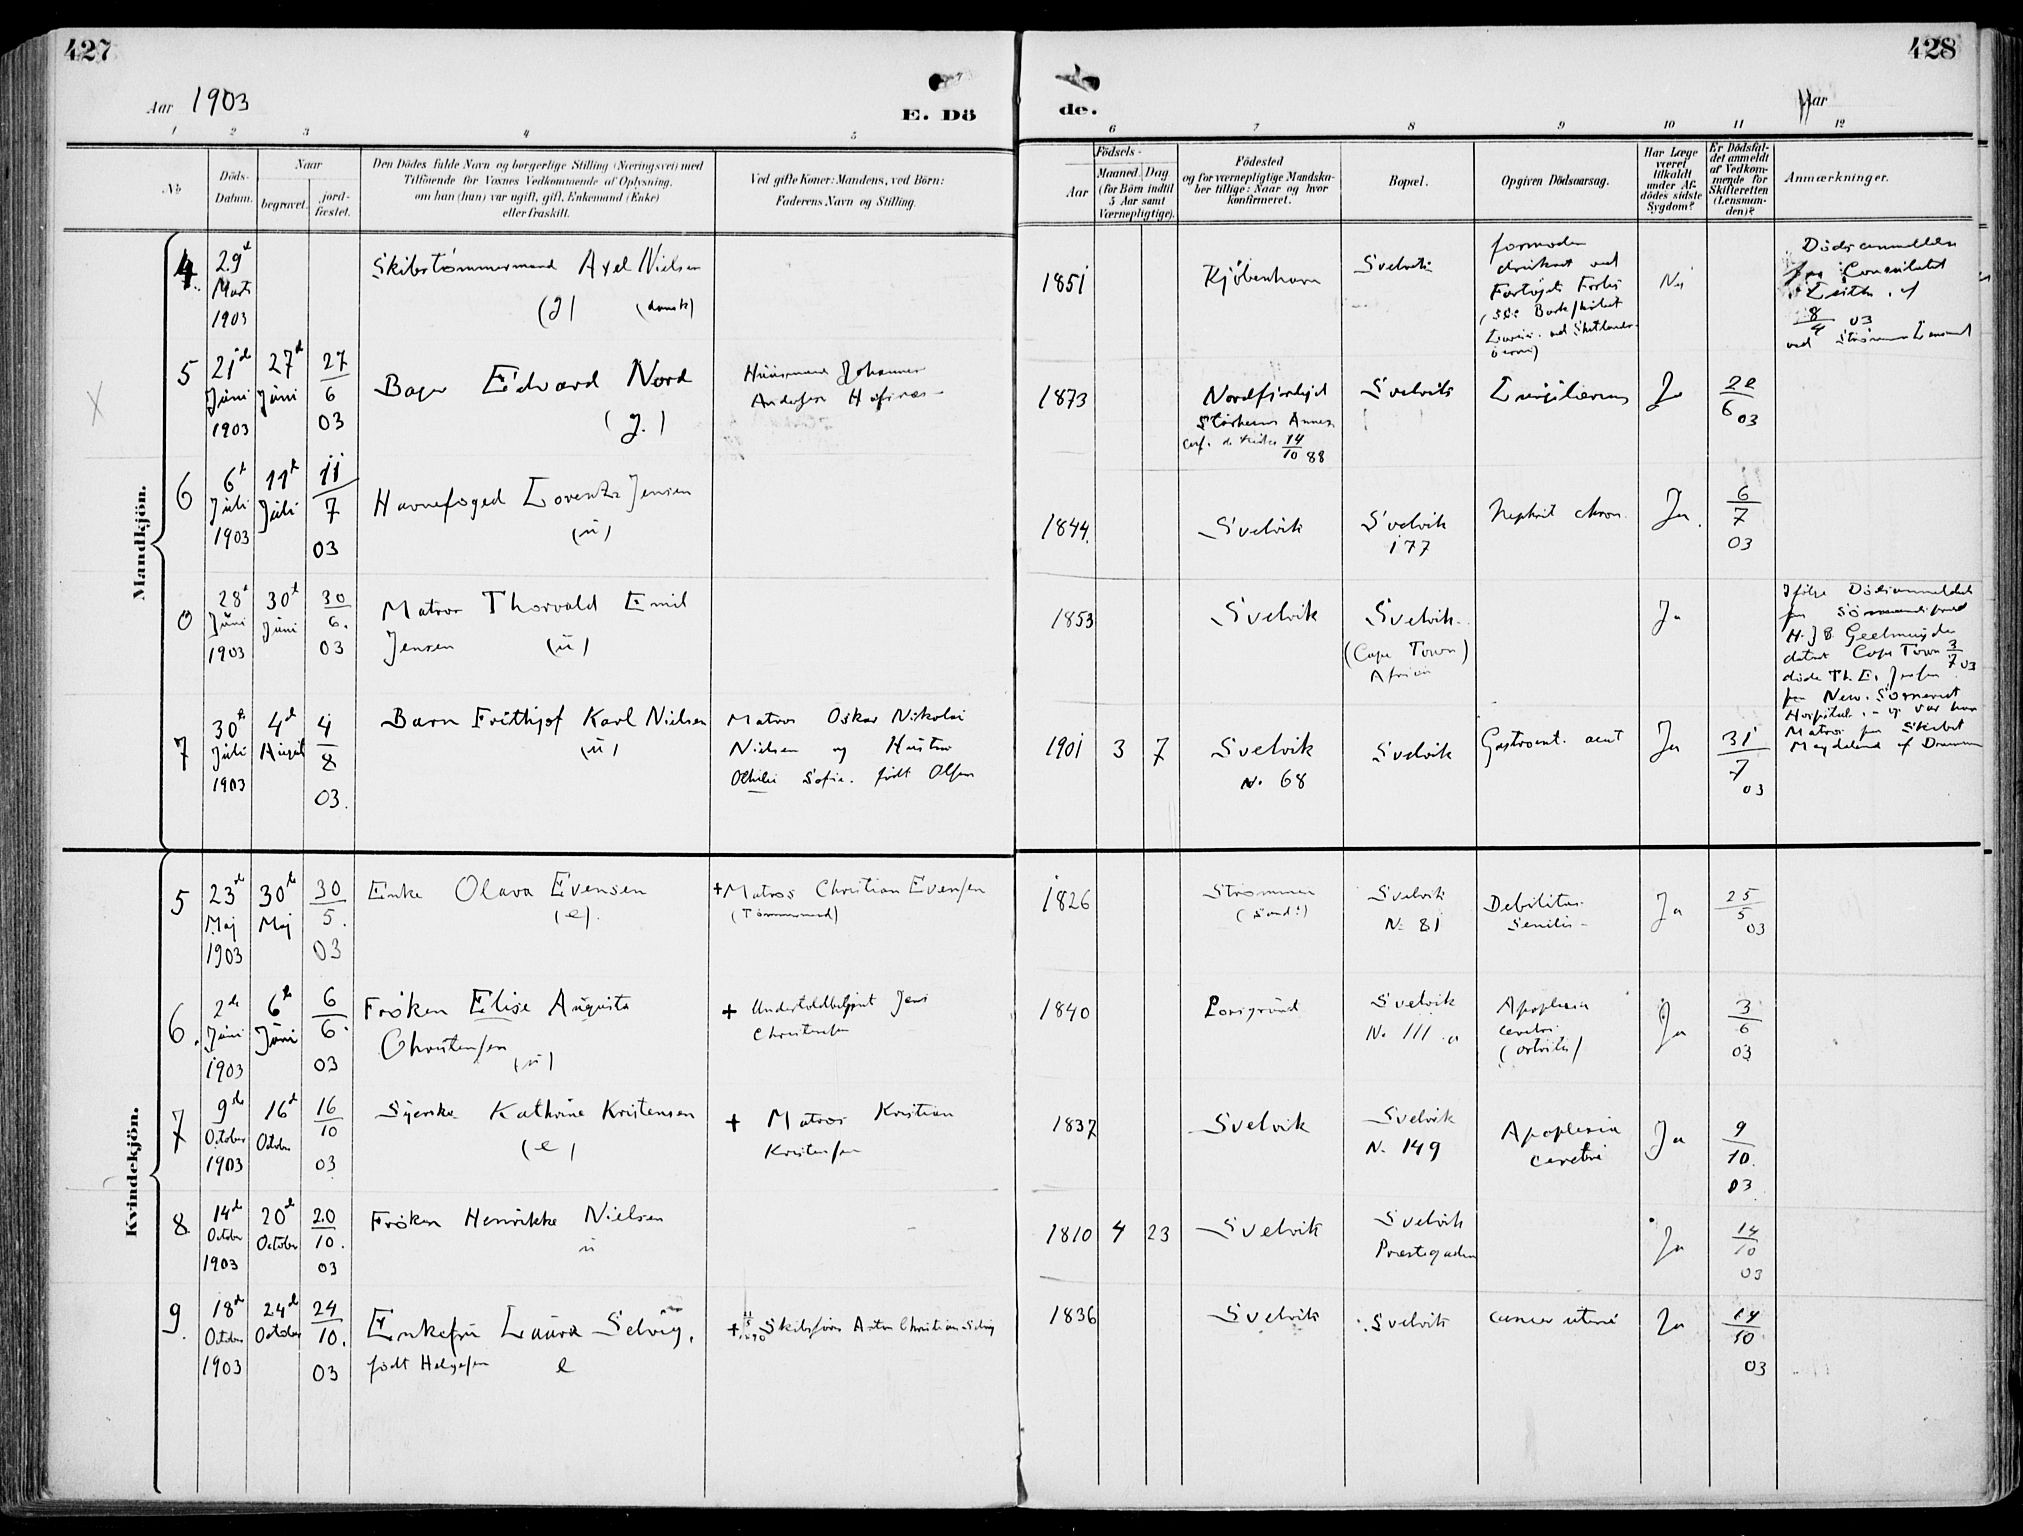 427
428
Aar 1903
E. Dö
de.
Aar
1 2 3 4 5
6 7 8 9 10 11 12
No
Döds-
Datum.
Naar
begravet.
jord-
fæstet.
Den Dödes fulde Navn og borgerlige Stilling (Næringsvei) med
Tilföiende for Voxnes Vedkommende af Oplysning.
om han (hun) var ugift, gift, Enkemand (Enke)
eller fraskilt.
Ved gifte Koner: Mandens, ved Börn:
Faderens Navn og Stilling.
Födsels-
Aar
Maaned. Dag
(for Börn indtil
5 Aar samt
Værnepligtige).
Födested
og for værnepligtige Mandska-
ber tillige: Naar og hvor
konfirmeret.
Bopæl.
Opgiven Dödsaarsag.
Har Læge
været
tilkaldt
under Af-
dödes sidste
Sygdom?
Er Dödsfal-
det anmeldt
af Vedkom-
mende for
Skifteretten
(Lensman-
den)?
Anmærkninger.
Mandkjön.
4
29d
Marts
1903
Skibstømmermand Axel Nielsen
(g) (dansk)
1851
Kjøbenhavn
Svelvik
formoden
druknet ved
Fartøiets Forlis
Nei
Dødsanmeldelse
fra Consulatet
8/4 03
5
21d
Juni
1903
27d
Juni
27/6
03
Bager Edvard Nord
(g.)
Husmand Johannes
Andersen
1873
Nordfjordeid
Annex
14/10 88
Svelvik
Ja
22/6 03
6
6d
Juli
1903
11d
Juli
11/7
03
Havnefoged Lorentz Jensen
(u)
1844.
Svelvik
Svelvik
177
Nephrit chron.
Ja.
6/7
03
0
28d
Juni
1903
30d
Juni
30/6.
03
Matros Thorvald Emil
Jensen (u)
1853
Svelvik
Svelvik.
(Cape Town)
Africa
Ja
Ifølge Dødsanmeldelse
fra
H. J. B. Geelmuyden
dateret Cape Town 3/7 03
døde Th. E. Jensen
paa New. Somerset
Hospital. - og var han
Matros paa Skibet
Magdalena af Drammen
7
30d
Juli
1903
4d
August
4/8
03.
Barn Frithjof Karl Nielsen
(u)
Matros Oskar Nikolai
Nielsen og Hustru
Othilie Sofie. født Olsen
1901 3 7
Svelvik
No. 68
Svelvik
Gastroent. acut
Ja
31/7
03
Kvindekjön.
5
23d
Maj
1903
30d
Maj
30/5.
03
Enke Olava Evensen
(e).
+ Matros Christian Evensen
(Tømmermand)
1826
Strømmen
(Sand?)
Svelvik
No 81
Debilitas
senilis -
Ja
25/5
03
6.
2d
Juni
1903
6d
Juni
6/6.
03
Frøken Elise Augusta
Christensen
(u)
+ Undertoldbetjent Jens
Christensen
1840
Porsgrund
Svelvik
No. 111 a
Apoplexia
cerebri
Ja
3/6
03
7
9d
October
1903
16d
October
16/10
03
Syerske Kathrine Kristensen
(e)
+ Matros Kristian
Kristensen
1837
Svelvik
Svelvik
No. 149
Apoplexia
cerebri
Ja
9/10.
03
8
14d
October
1903
20d
October
20/10.
03
Frøken Henrikke Nielsen
u
1810 4 23
Svelvik
Svelvik
Præstegaden
Ja
14/10
03
9.
18d
October
1903
24d
October
24/10.
03
Enkefru Laura Selvig,
født Helgesen e
+ Skibsfører Anton Christian Selvig
1836
Svelvik
Svelvik
cancer uteri
Ja
19/10
03